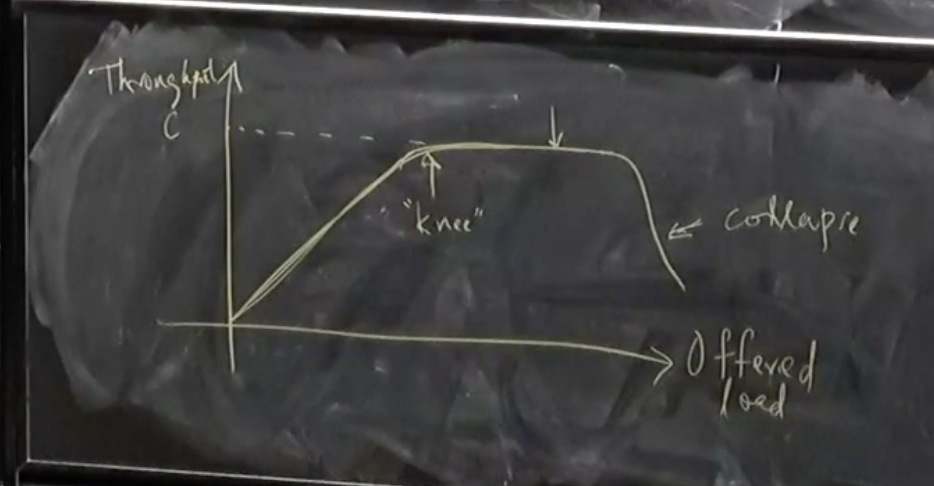 Throughput
C
"knee"
collapse
Offered
load